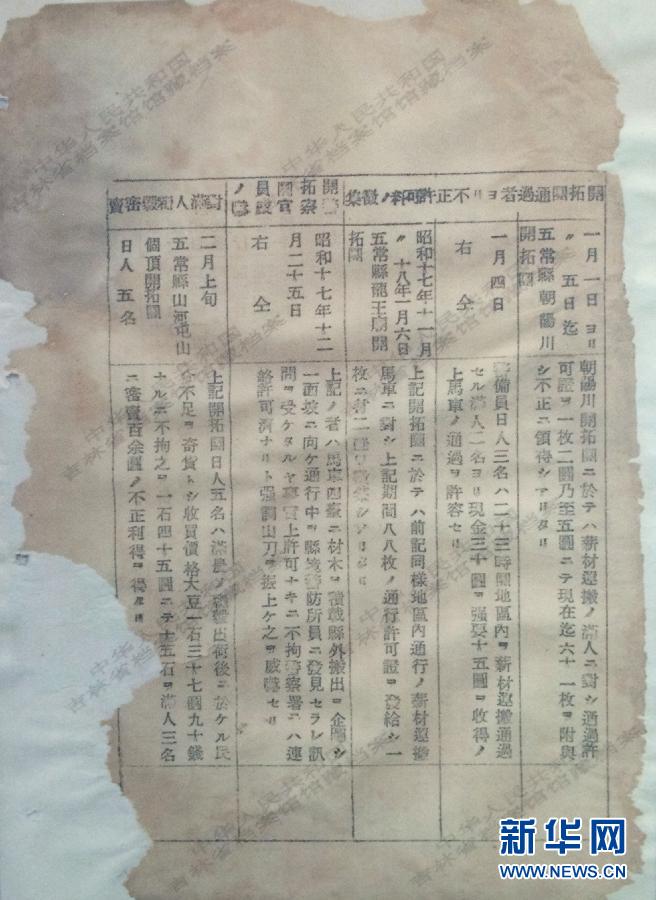 開拓團通過者ヨリ不正許可料ノ徴集
一月一日ヨリ
〃五日迄
五常縣朝陽川
開拓團
朝陽川開拓團ニ於テハ薪材運搬ノ滿人ニ對シ通過許
可證ヲ一枚二圓乃至五圓ニテ現在迄六十一枚ヲ附與
シ不正ニ領得シアリタリ
一月四日
右仝
警備員日人三名ハ二十三時間地區內ヲ薪材運搬通過
セル滿人二名ヨリ現金三十圓ヲ强要十五圓ヲ收得ノ
上馬車ノ通過ヲ許容セリ
昭和十七年十一月
〃十八年一月六日
五常縣龍王廟開
拓團
上記開拓團ニ於テハ前記同樣地區內通行ノ薪材運搬
馬車ニ對シ上記期間八八枚ノ通行許可證ヲ發給シ一
枚ニ付二圓
開拓團員
警察官
昭和十七年十二
月二十五日
右仝
上記ノ者ハ馬車四臺ニ材木ヲ積載縣外搬出ヲ企圖シ
一面坡ニ向ケ通行中ヲ縣境警防所員ニ發見セラレ訊
問ヲ受ケタルヤ事實上許可ナキニ不拘警察署ニハ連
絡許可濟ナリト强調山刀ヲ振上ケ之ヲ威嚇セリ
對滿人糧穀密賣
二月上旬
五常縣山河屯山
個頂開拓團
日人五名
上記開拓團日人五名ハ滿農ノ糧穀出荷後ニ於ケル民
食不足ヲ奇貨トシ收買價格大豆一石三十七圓九十錢
ナルニ不拘之ヲ一石四十五圓ニテ十五石ヲ滿人三名
ニ密賣百余圓ノ不正利得ヲ得タリ
中华人民共和国
吉林省档案馆馆藏档案
新华网
WWW.NEWS.CN